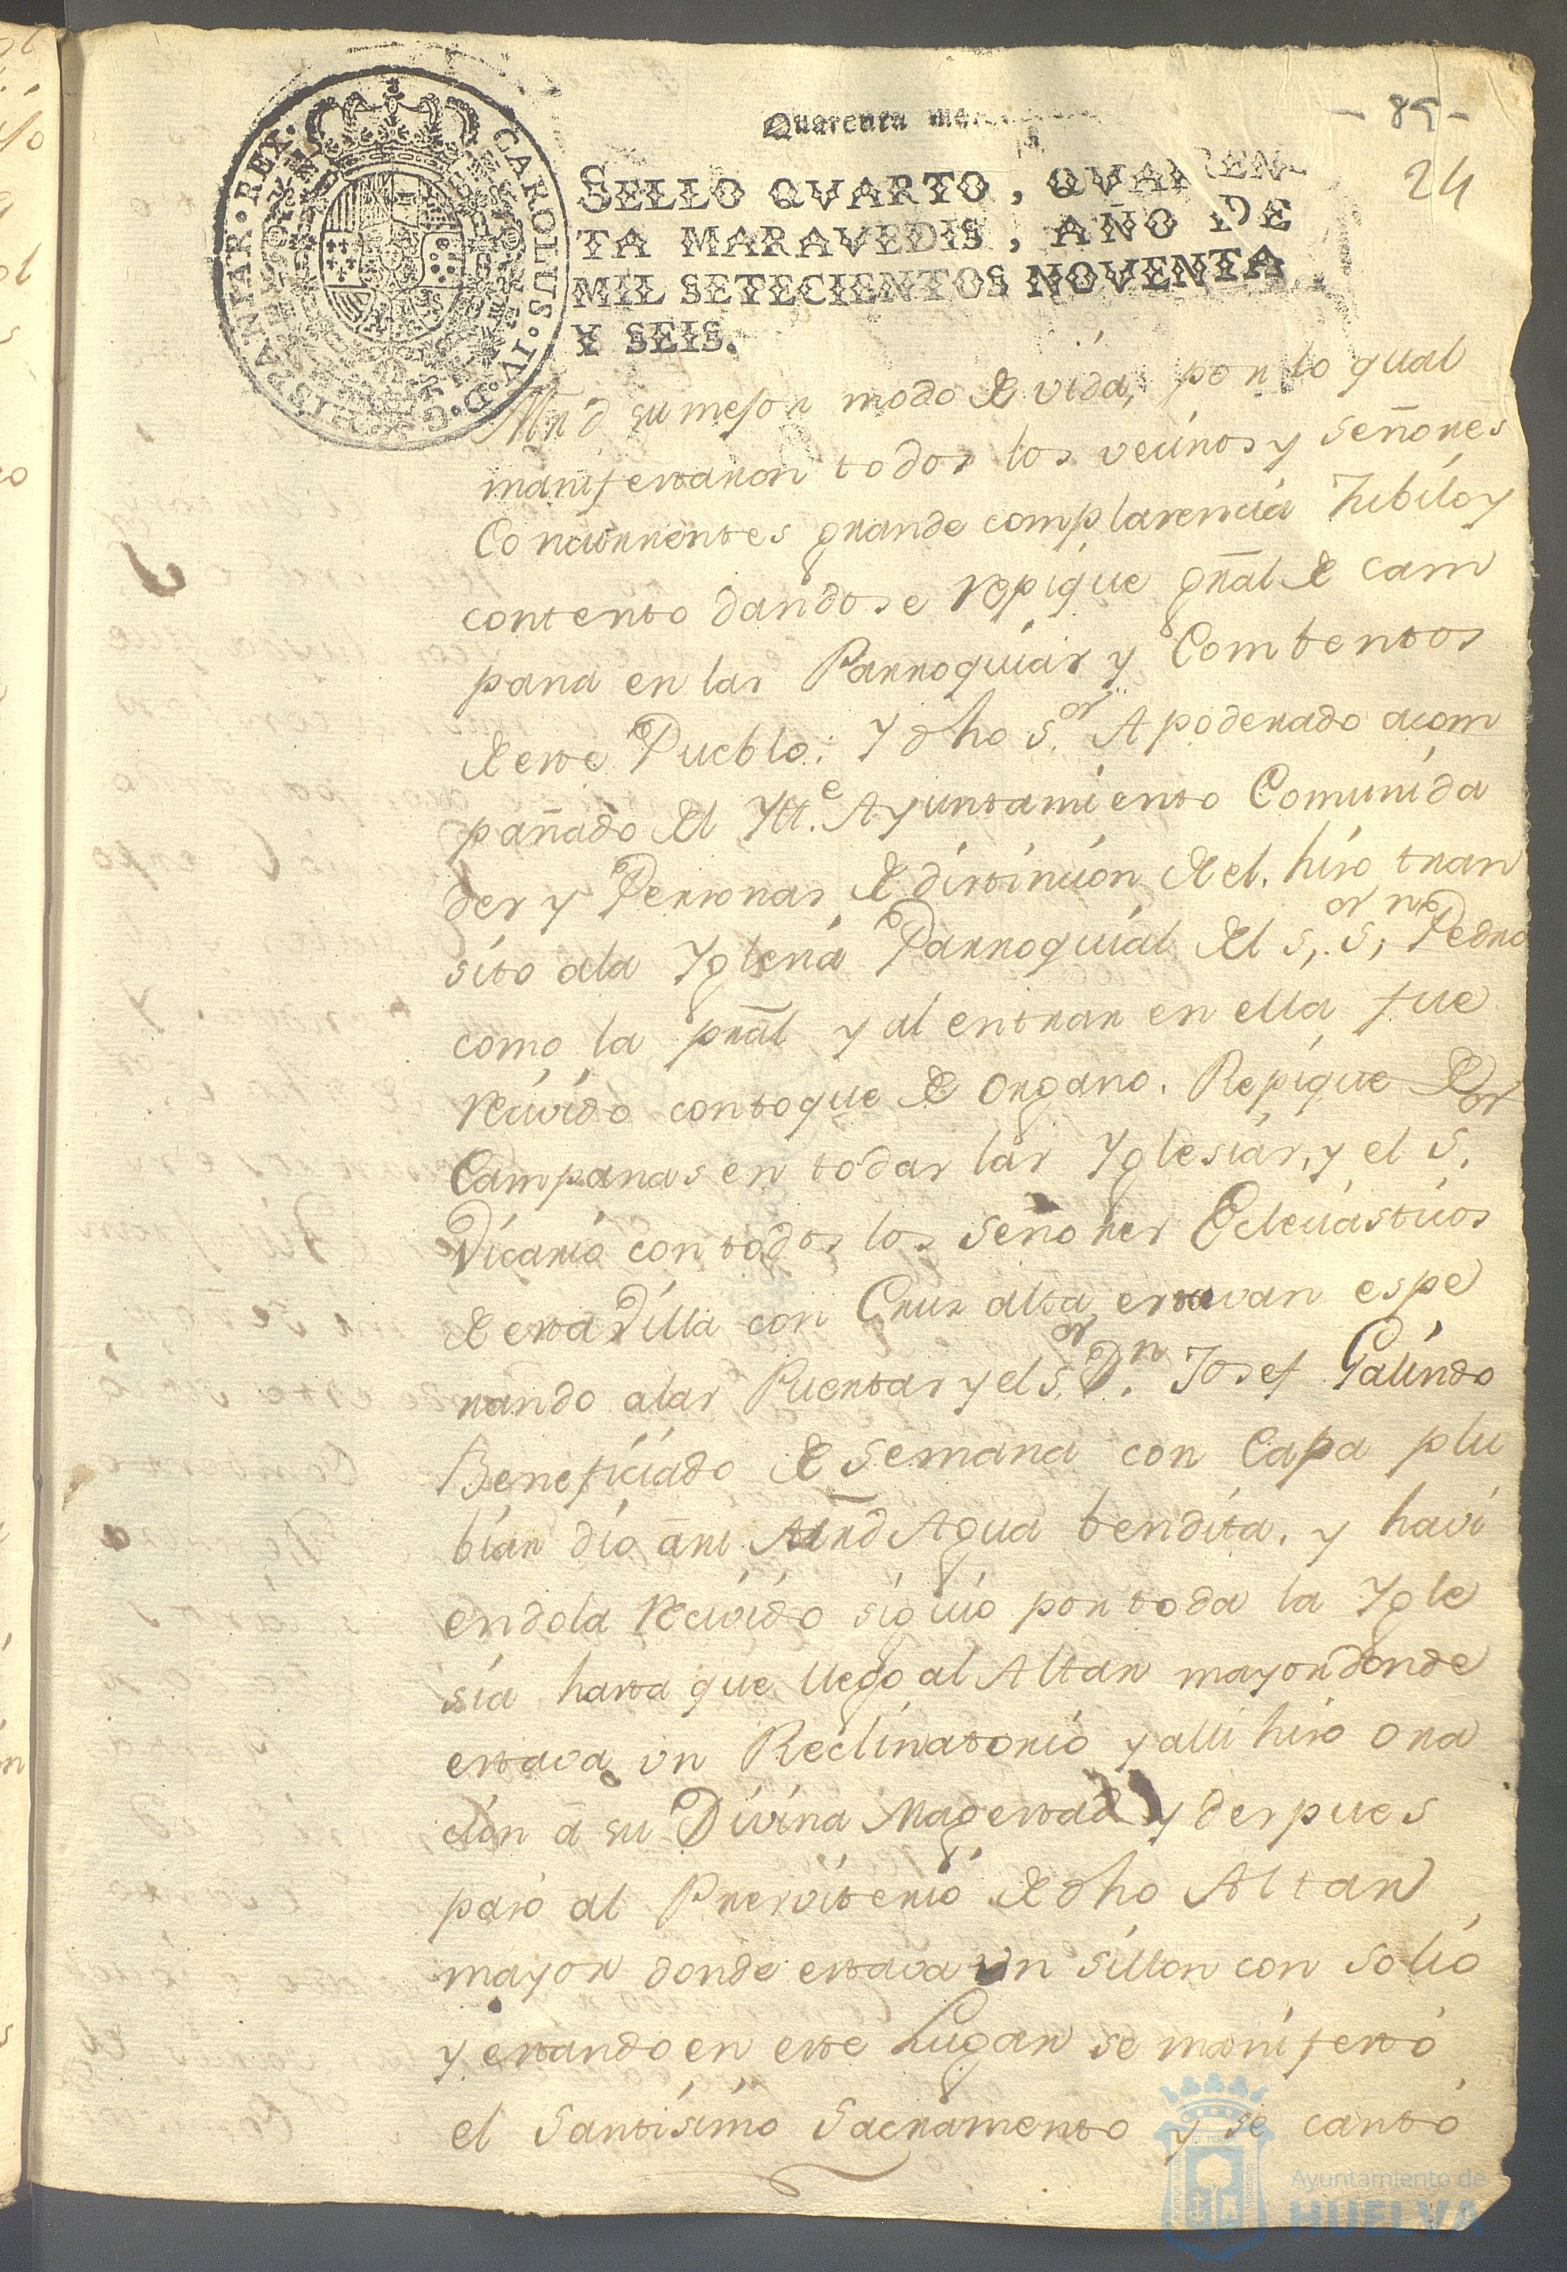 Quarenta
- 85 -
24
CAROLUS · IV · D · G · HISPANIAR · REX ·
SELLO QVARTO, QVAREN-
TA MARAVEDIS, AÑO DE
MIL SETECIENTOS NOVENTA
Y SEIS.
su mejor modo de vida, por lo qual
manifestaron todos los vecinos y señores
Concurrentes grande complasencia Jubilo y
contento dandose repique gral de cam
pana en las Parroquias y Combentos
de este Pueblo: Y dho S.or Apoderado acom
pañado del Ytt.e Ayuntamiento Comunida
des y Personas de distincion de el. hiso tran
sito ala Yglecia Parroquial del S.or S.n Pedro
como la pral y al entrar en ella fue
recivido contoque de organo. Repique de
Campanas en todas las Yglesias, y el S.or
Vicario con todos los señores Ecleciasticos
de esta Villa con Cruz alta estavan espe
rando alas Puertas y el S.or D.n Josef Galindo
Beneficiado de semana con Capa plu
bial dio Agua bendita. y havi
endola recivido siguio por toda la Ygle
sia hasta que llego al Altar mayor donde
estava un Reclinatorio y alli hiso ora
cion a su Divina Magestad y despues
paso al Presviterio de dho Altar
mayor donde estava un sillon con solio
y estando en este Lugar se manifesto
el Santisimo Sacramento y se canto
Ayuntamiento de
HUELVA